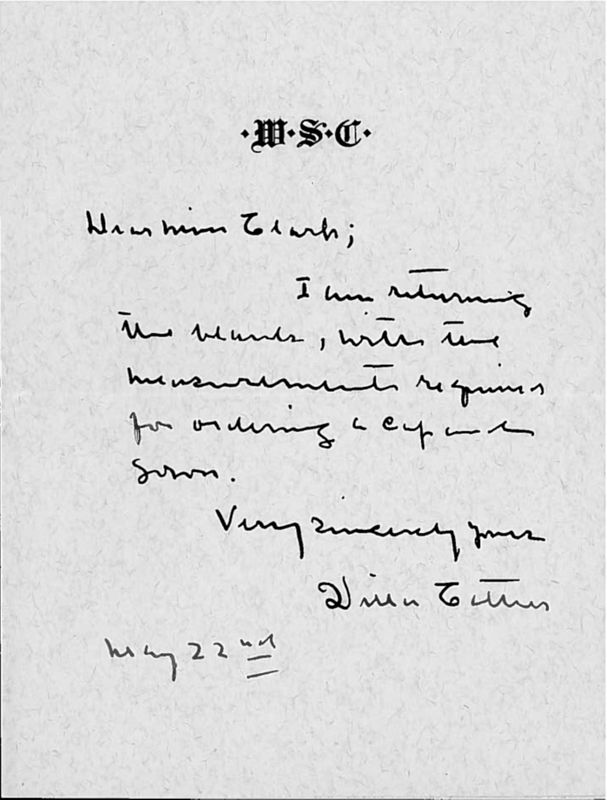 ·W·S·C·
Dear Miss Clark;
I am returning
the blanks, with the
measurements required
for ordering a cap and
gown.
Very sincerely yours
Willa Cather
May 22nd